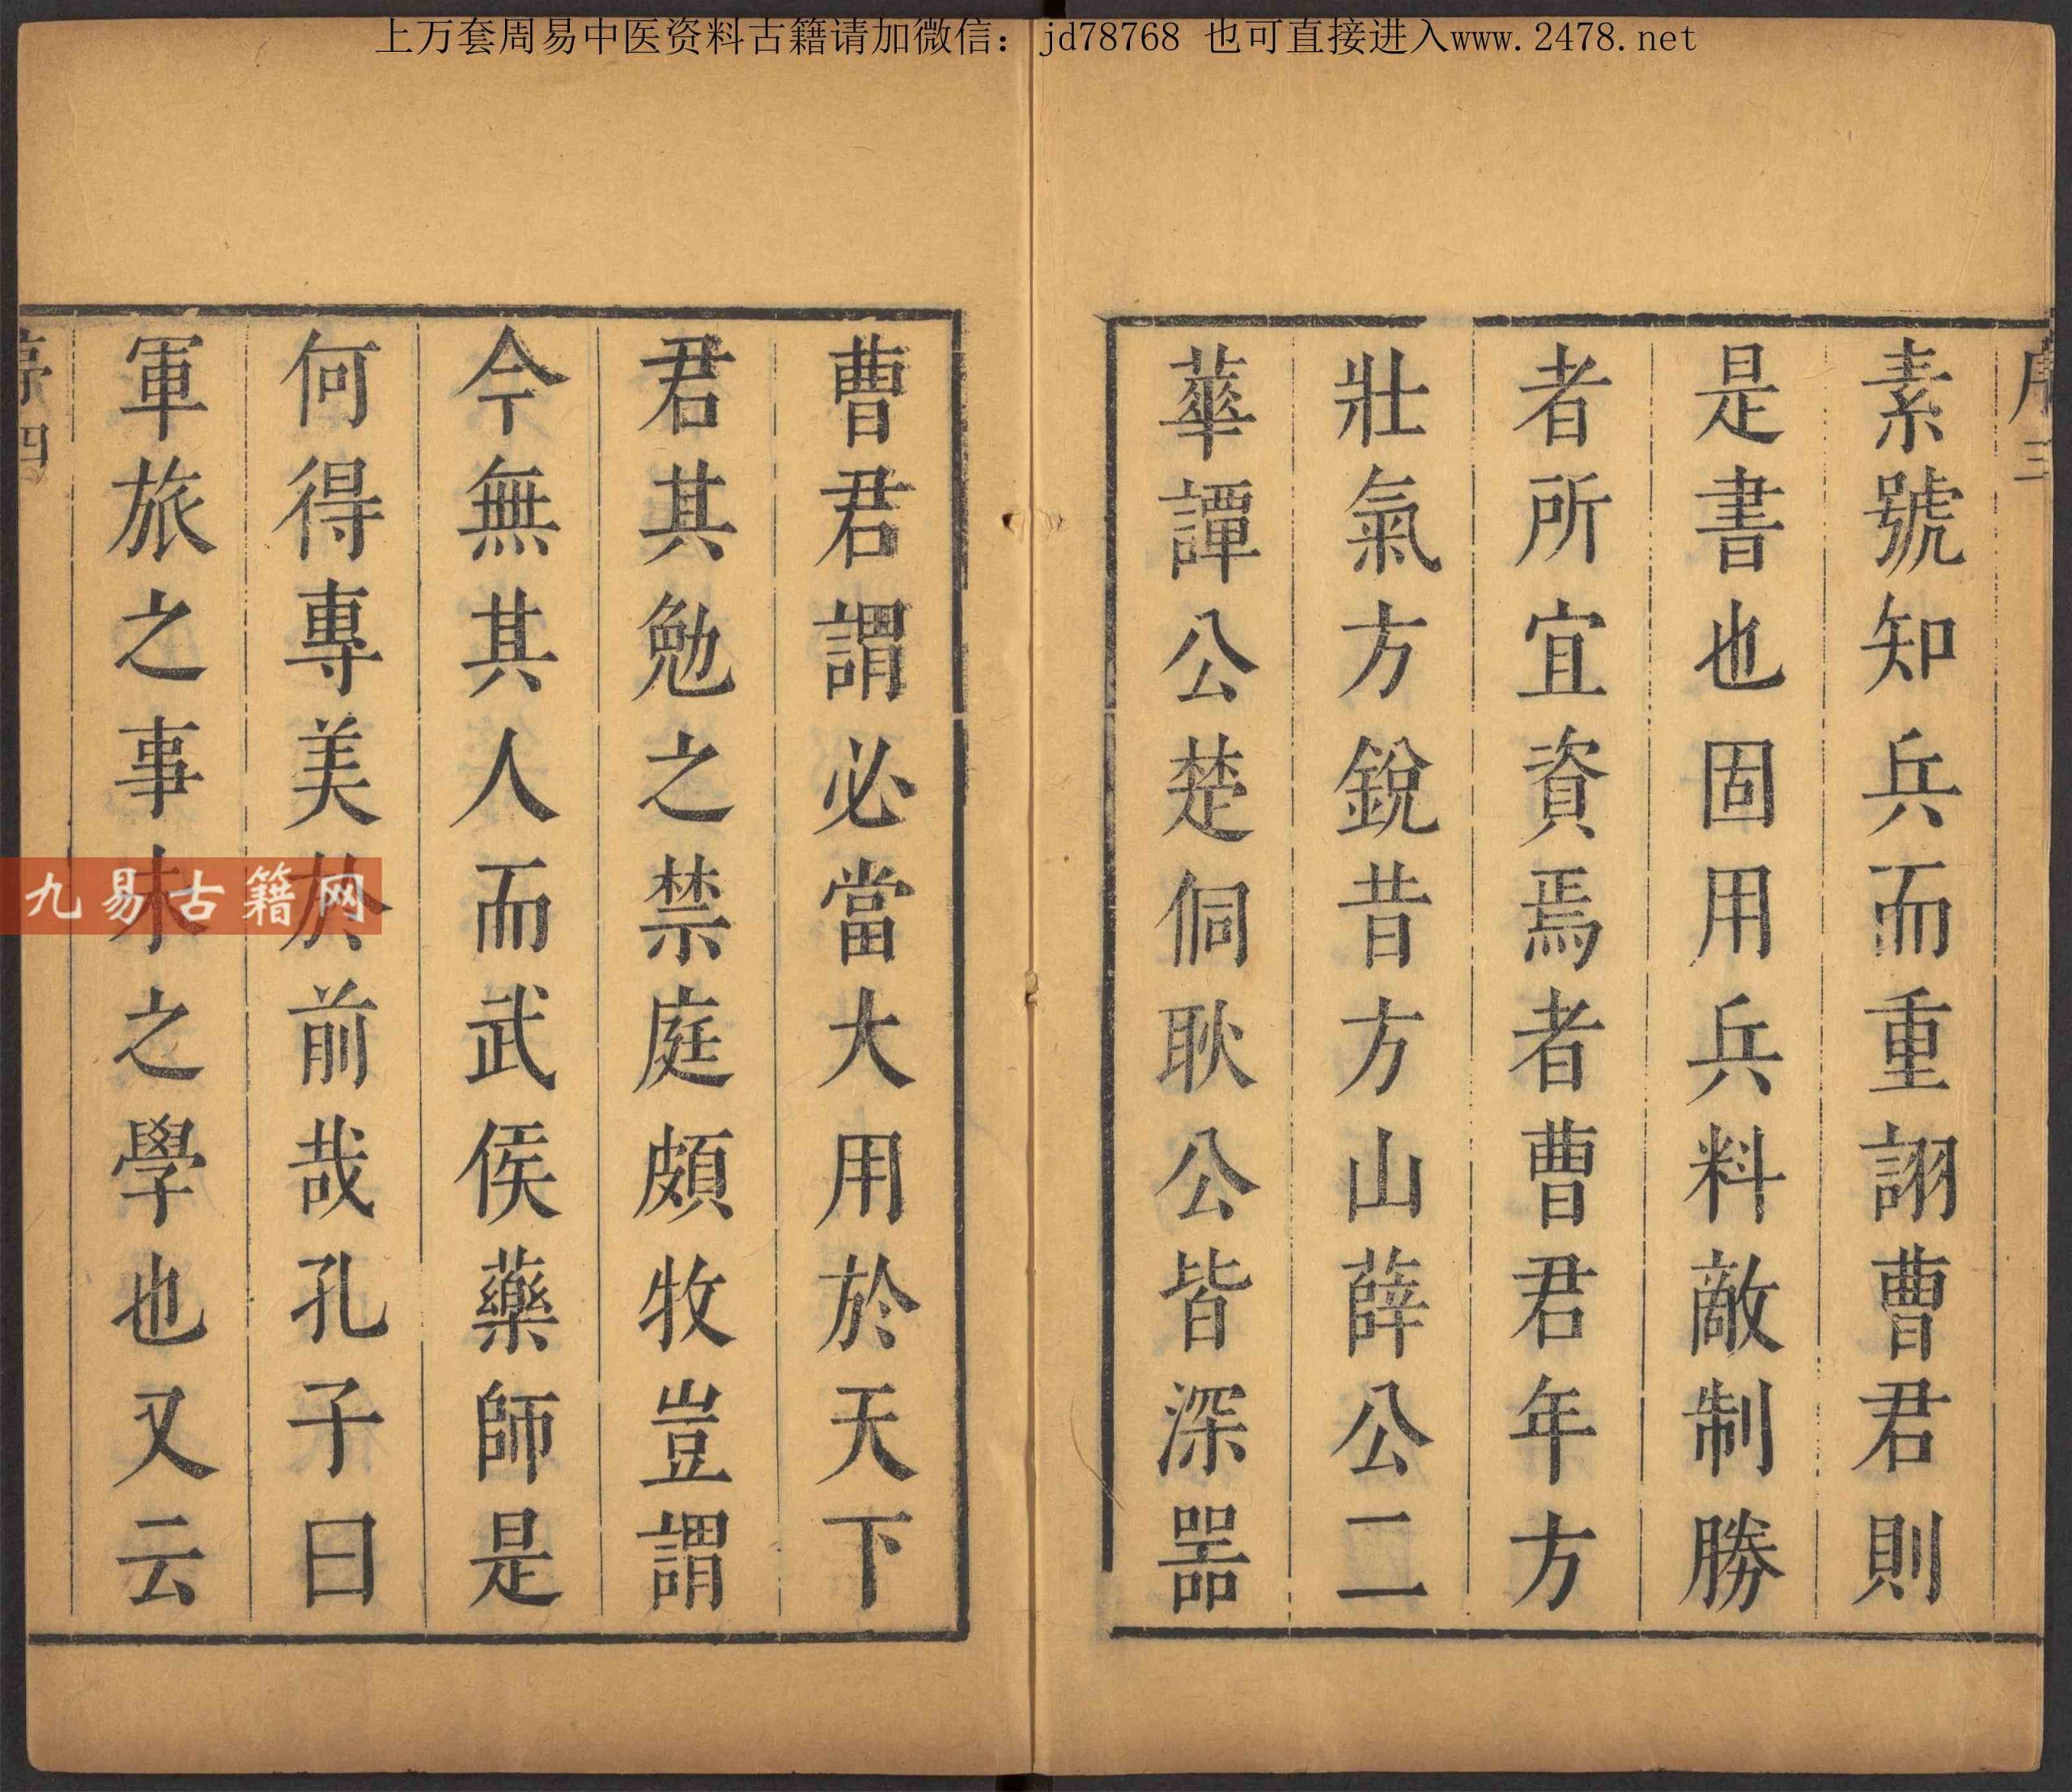 上万套周易中医资料古籍请加微信： jd78768 也可直接进入www.2478.net
序三
素號知兵而重詡曹君則
是書也固用兵料敵制勝
者所宜資焉者曹君年方
壯氣方銳昔方山薛公二
華譚公楚侗耿公皆深噐
曹君謂必當大用於天下
君其勉之禁庭頗牧豈謂
今無其人而武侯藥師是
何得專美於前哉孔子曰
軍旅之事未之學也又云
序四
九易古籍网